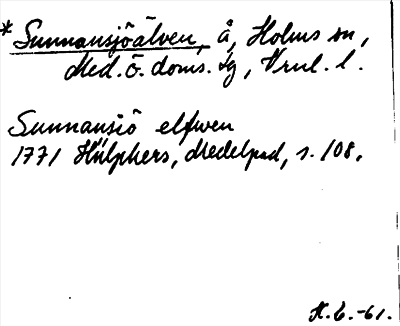 * Sunnansjöälven, å, Holms sn,
Med. ö. doms. sg, Vrnl. l.
Sunnansiö elfwen
1771 Hülphers, Medelpad, s. 108.
H. E. -61.